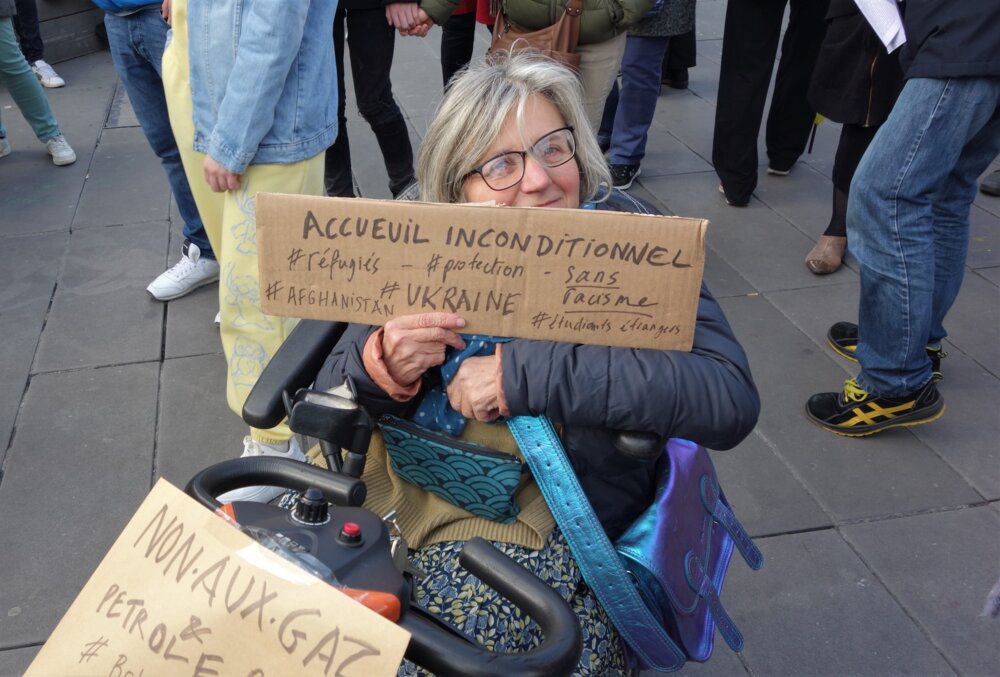 ACCUEUIL INCONDITIONNEL
#réfugiés - #protection - sans
#AFGHANISTAN #UKRAINE racisme
#étudiants étrangers
NON·AUX·GAZ
&
PETROLE
#